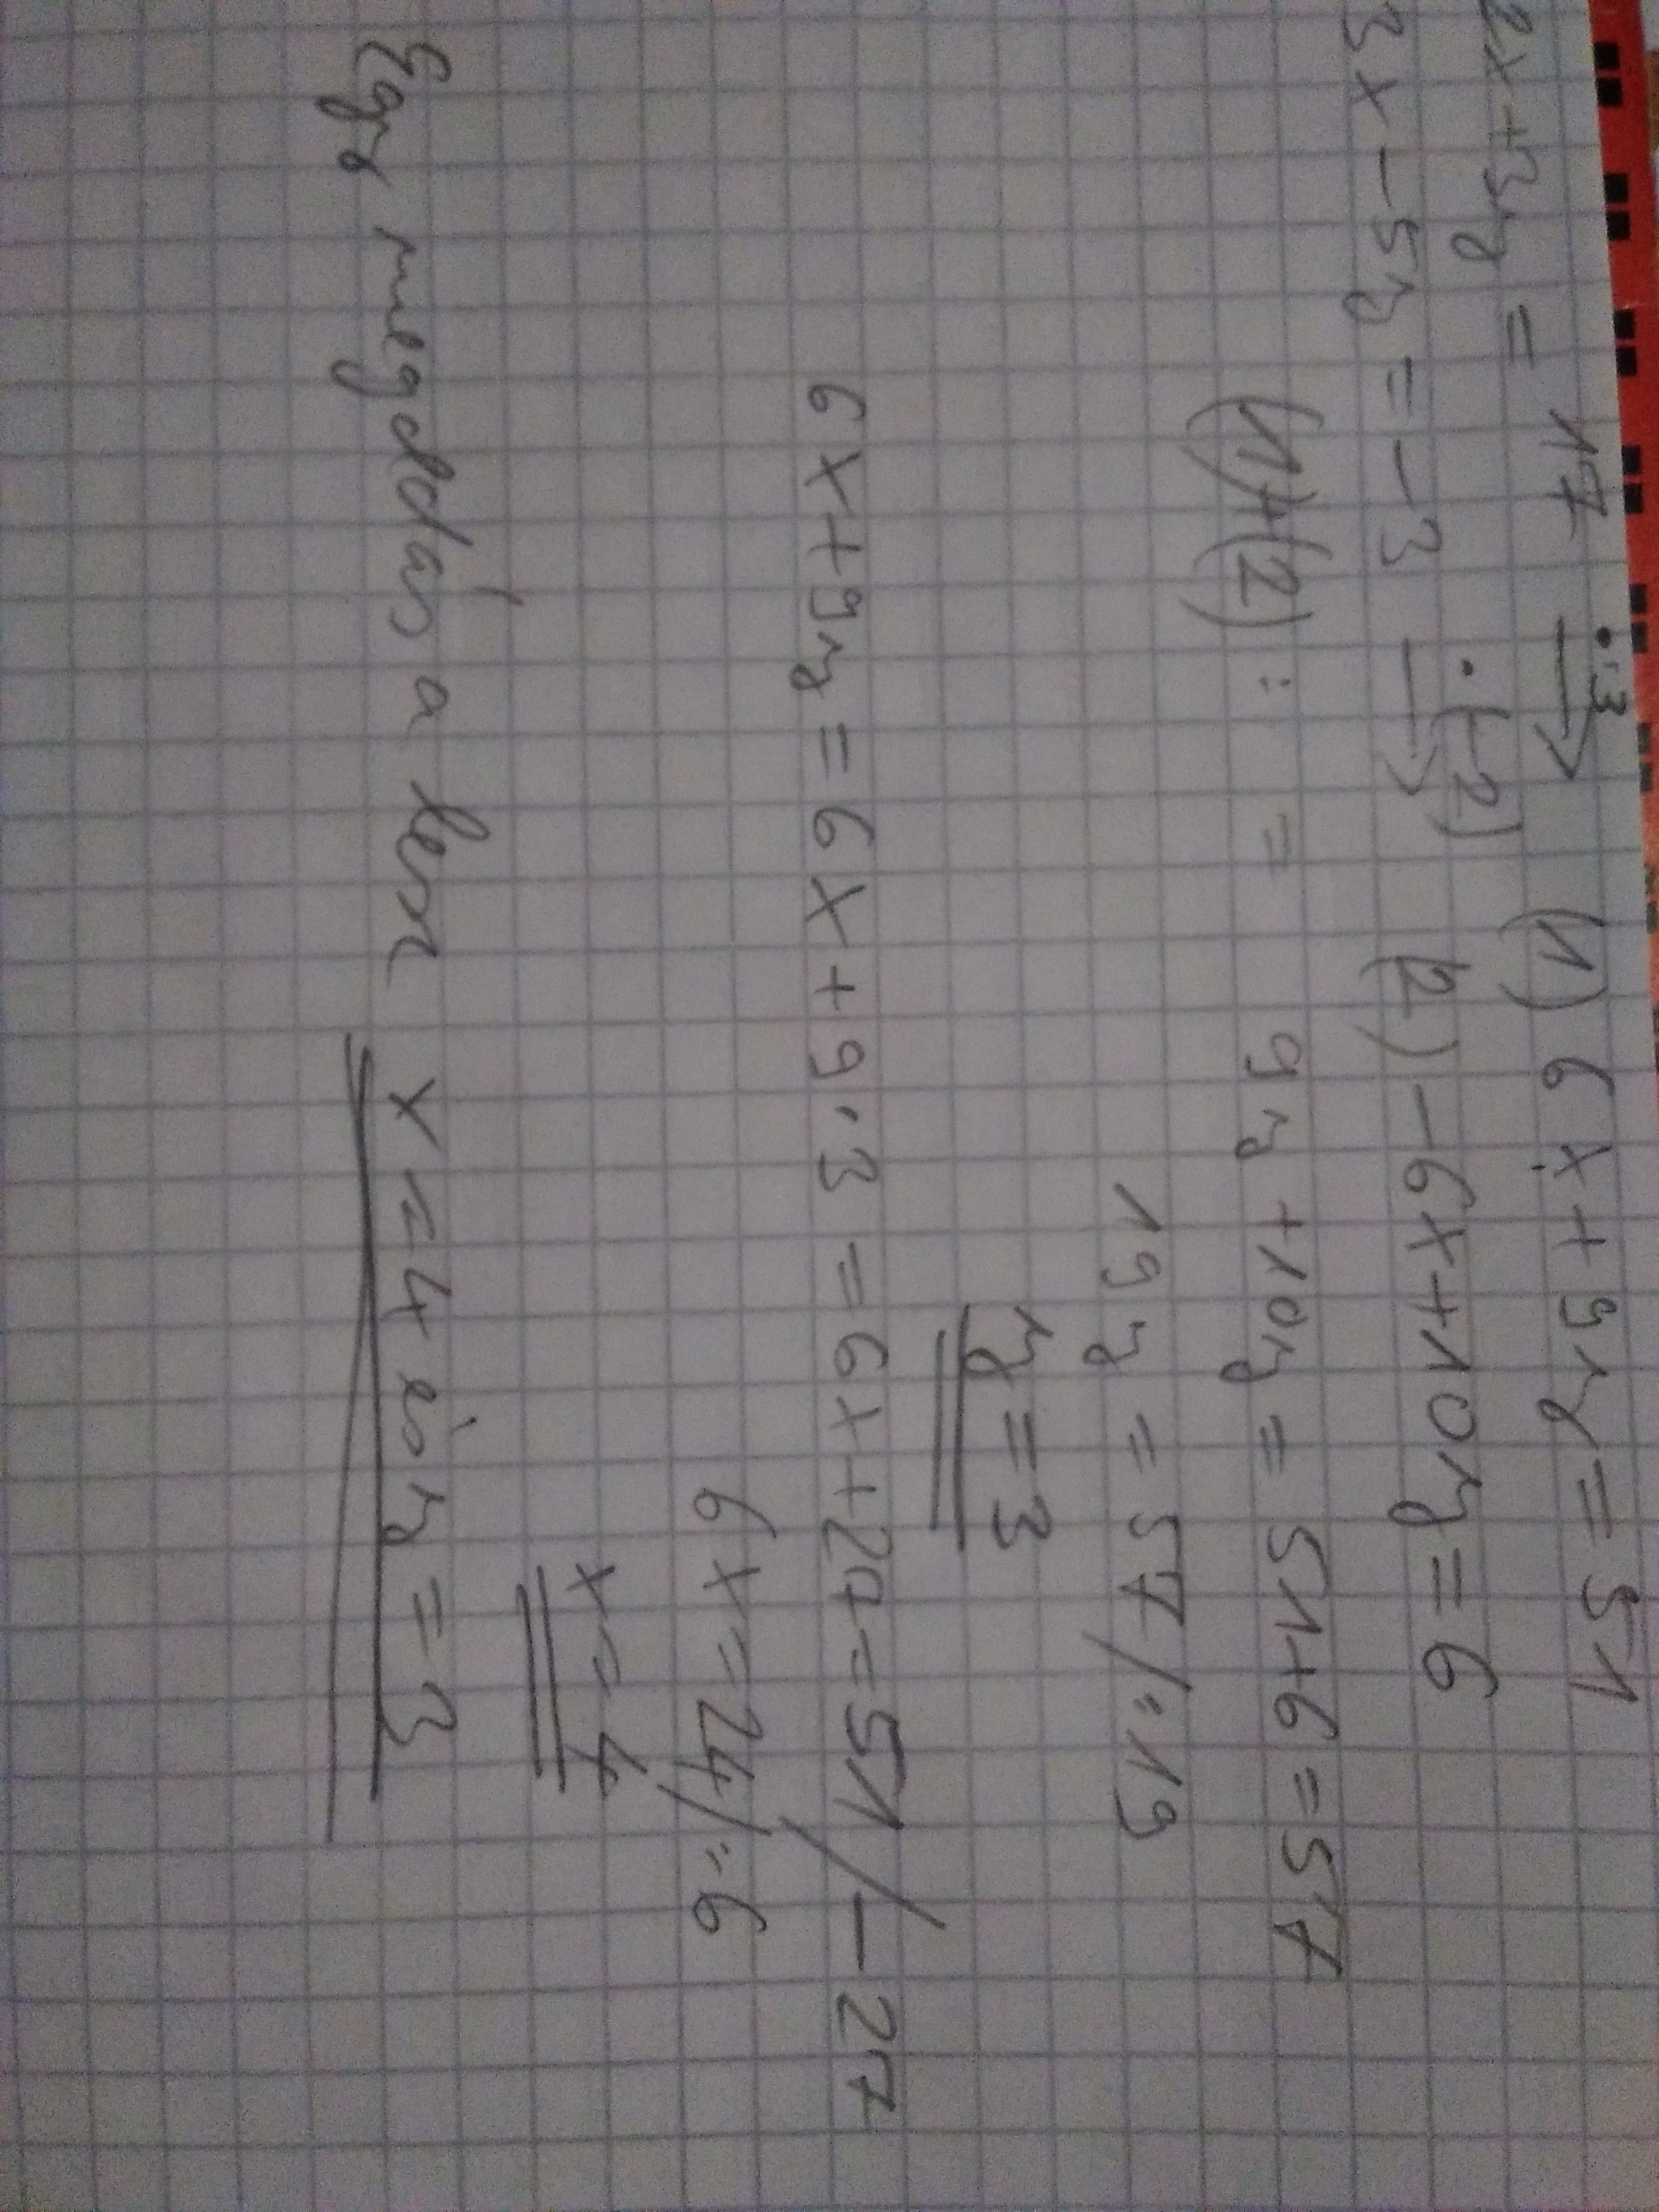 2x+3y = 17 ·3 → (1) 6x+9y = 51
3x-5y = -3 ·(-2) → (2) -6x+10y = 6
(1)+(2) : = 9y+10y = 51+6=57
19y = 57/:19
y=3
6x+9y = 6x+9·3 = 6x+27=51/-27
6x=24/:6
x=4
megoldás a lesz x=4 és y=3